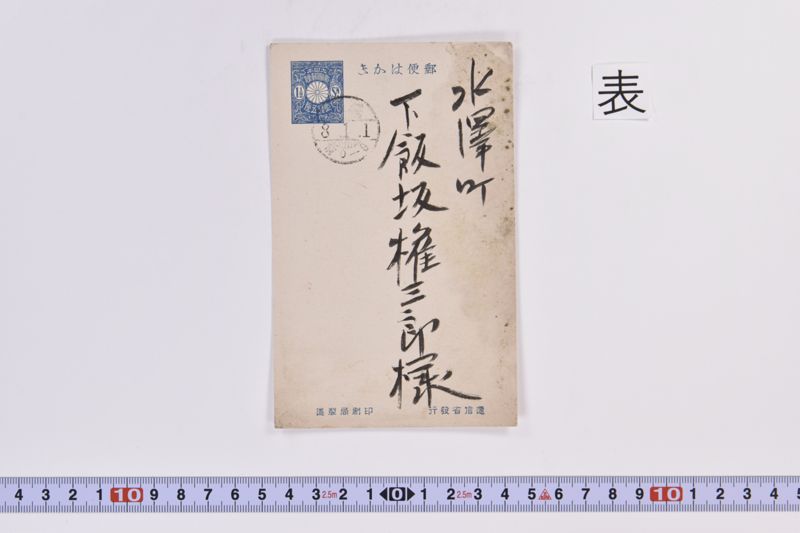 郵便はかき
水澤町
下飯坂権三郎様
8.1.1
逓信省發行
印刷局製造
表
4 3 2 1 10 9 8 7 6 5 4 3 2.5m 2 1 0 1 2 2.5m 3 4 5 6 7 8 9 10 1 2 3 4 5